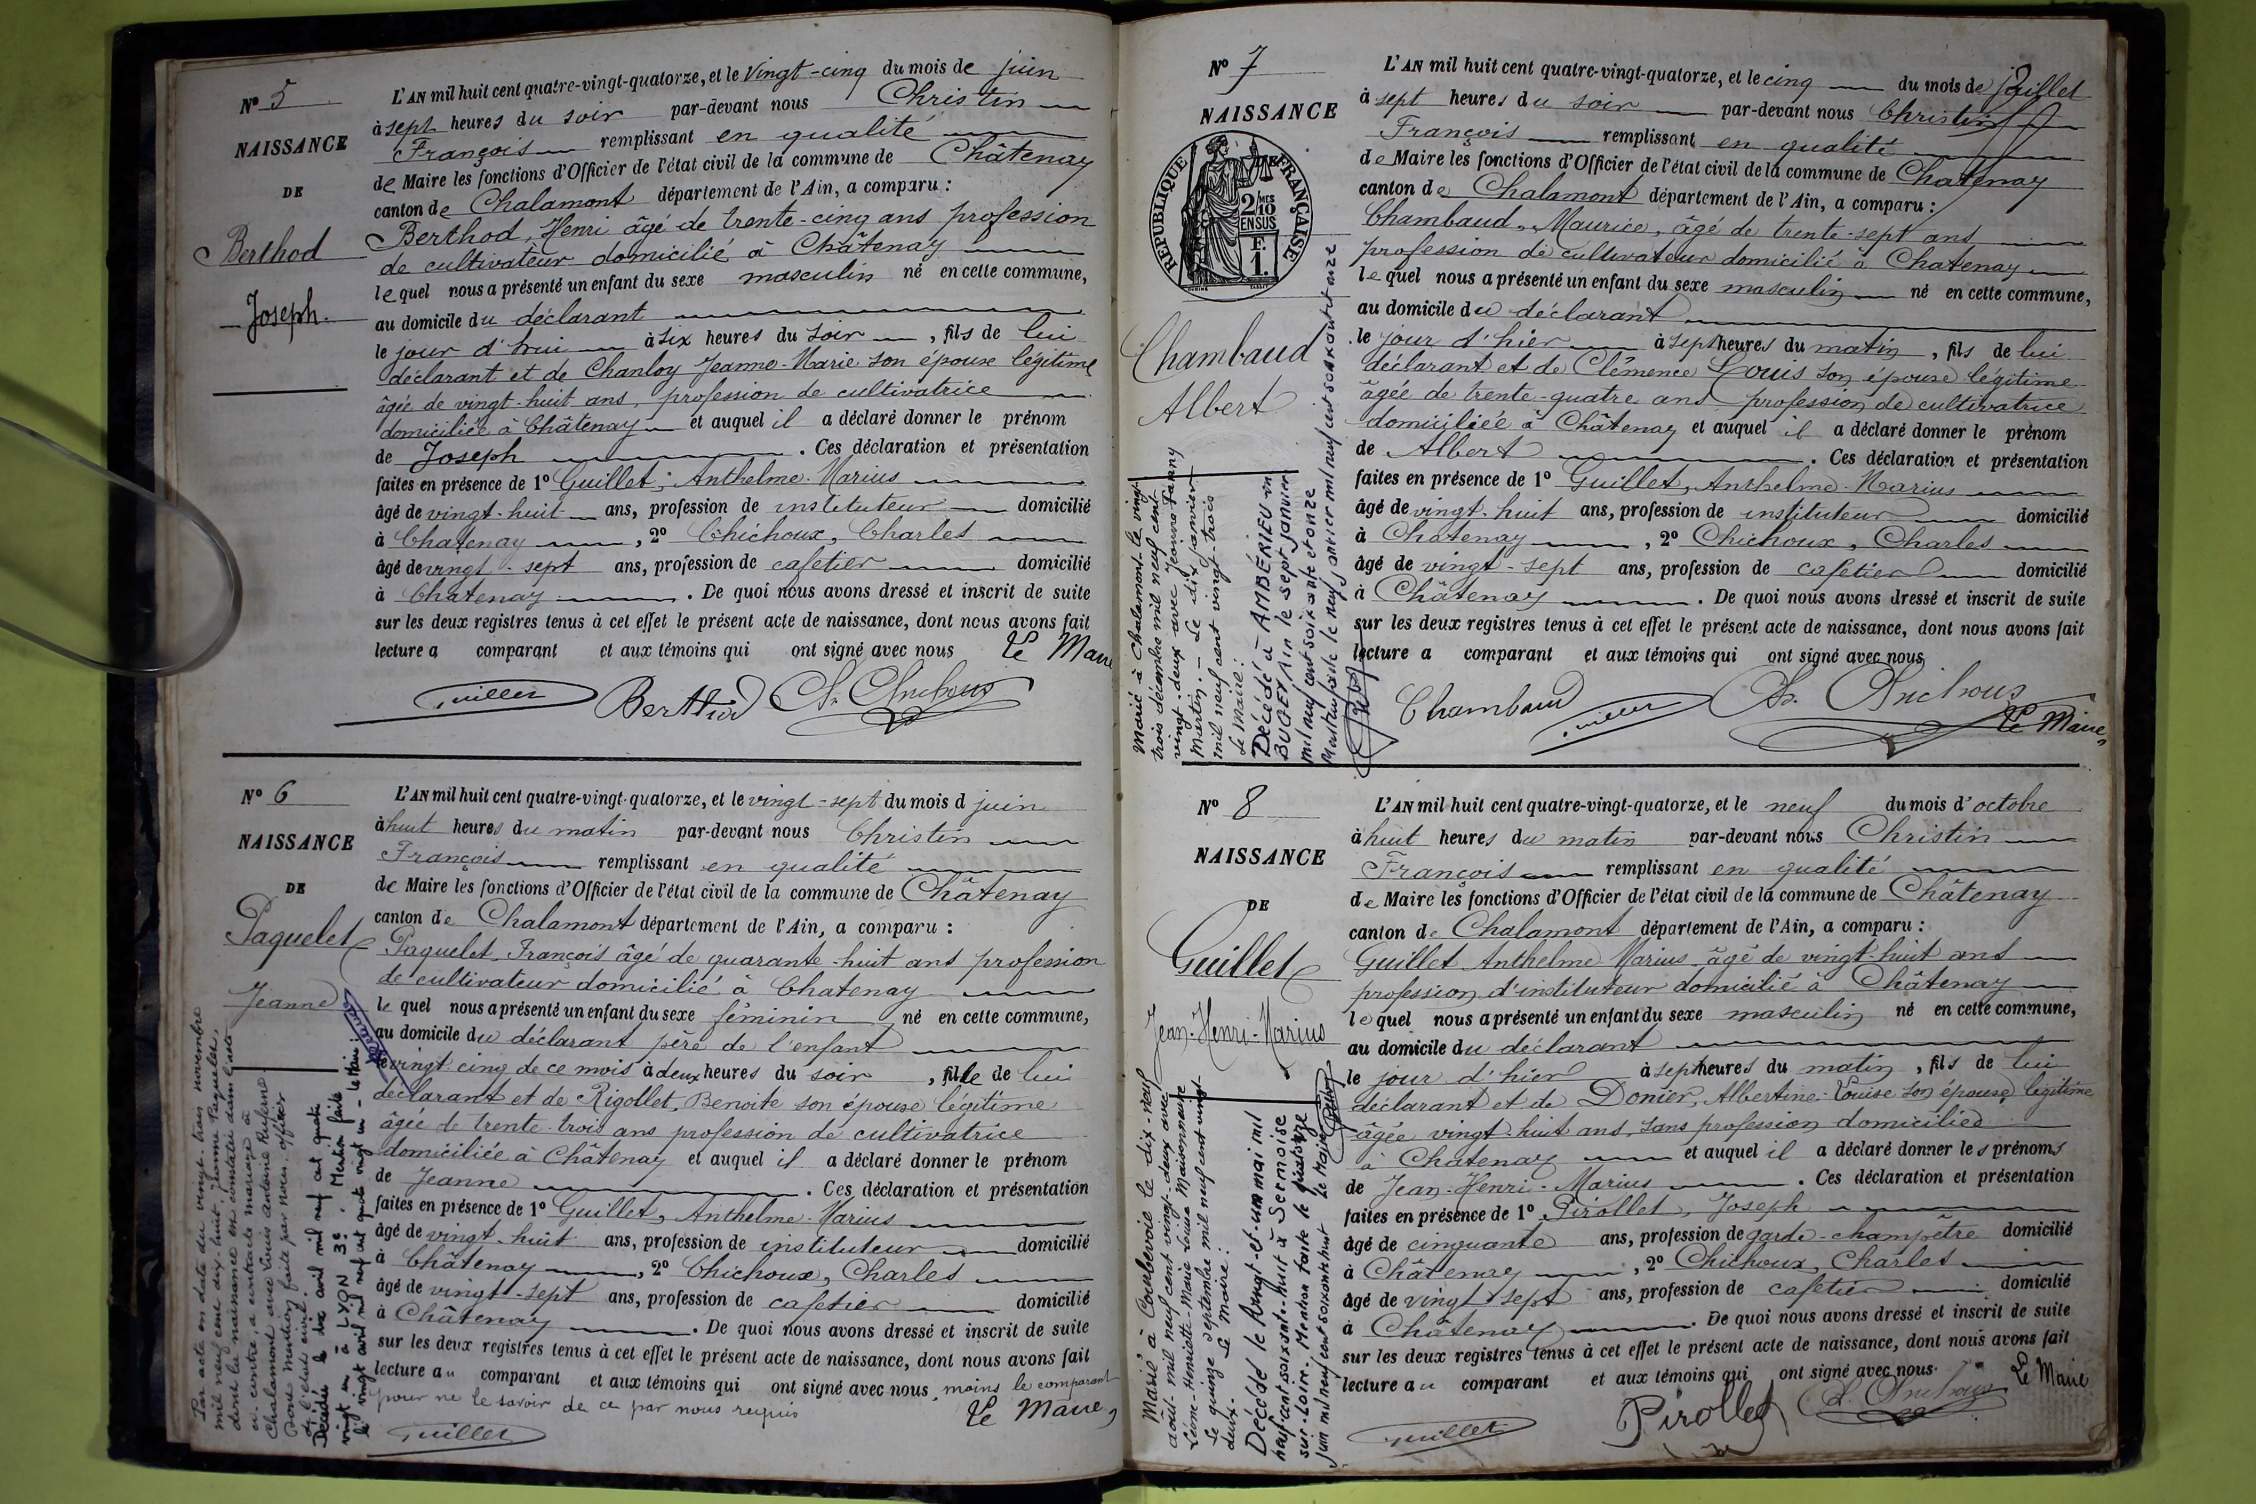 Nº 5
NAISSANCE
DE
Berthod
Joseph.
L'AN mil huit cent quatre-vingt-quatorze, et le vingt-cinq du mois de juin
à sept heures du soir par-devant nous Christin
François remplissant en qualité
de Maire les fonctions d'Officier de l'état civil de la commune de Châtenay
canton de Chalamont département de l'Ain, a comparu :
Berthod, Henri âgé de trente-cinq ans profession
de cultivateur domicilié à Châtenay
lequel nous a présenté un enfant du sexe masculin né en cette commune,
au domicile du déclarant
le jour d'hui à six heures du soir, fils de lui
déclarant et de Chanloy Jeanne-Marie son épouse légitime
âgée de vingt-huit ans, profession de cultivatrice
domiciliée à Châtenay et auquel il a déclaré donner le prénom
de Joseph. Ces déclaration et présentation
faites en présence de 1º Guillet, Anthelme-Marius
âgé de vingt-huit ans, profession de instituteur domicilié
à Chatenay, 2º Chichoux, Charles
âgé de vingt-sept ans, profession de cafetier domicilié
à Châtenay. De quoi nous avons dressé et inscrit de suite
sur les deux registres tenus à cet effet le présent acte de naissance, dont nous avons fait
lecture a comparant et aux témoins qui ont signé avec nous Le Maire
Guillet Berthod Ch. Chichoux
Nº 6
NAISSANCE
DE
Paquelet
Jeanne
L'AN mil huit cent quatre-vingt-quatorze, et le vingt-sept du mois d juin
à huit heures du matin par-devant nous Christin
François remplissant en qualité
de Maire les fonctions d'Officier de l'état civil de la commune de Châtenay
canton de Chalamont département de l'Ain, a comparu :
Paquelet, François âgé de quarante-huit ans profession
de cultivateur domicilié à Chatenay
lequel nous a présenté un enfant du sexe féminin né en cette commune,
au domicile du déclarant père de l'enfant
le vingt-cinq de ce mois à deux heures du soir, fille de lui
déclarant et de Rigollet, Benoite son épouse légitime
âgée de trente-trois ans profession de cultivatrice
domiciliée à Châtenay et auquel il a déclaré donner le prénom
de Jeanne. Ces déclaration et présentation
faites en présence de 1º Guillet, Anthelme-Marius
âgé de vingt-huit ans, profession de instituteur domicilié
à Châtenay, 2º Chichoux, Charles
âgé de vingt-sept ans, profession de cafetier domicilié
à Châtenay. De quoi nous avons dressé et inscrit de suite
sur les deux registres tenus à cet effet le présent acte de naissance, dont nous avons fait
lecture au comparant et aux témoins qui ont signé avec nous, moins le comparant
pour ne le savoir de ce par nous requis
Le Maire,
Guillet
Par acte en date du vingt-trois novembre
mil neuf cent dix-huit, Jeanne Paquelet,
dont la naissance est constatée dans l'acte
ci-contre, a contracté mariage à
Chalamont avec Louis Antoine
Pour mention faite par nous, officier
de l'état civil.
Décédée le dix avril mil neuf cent quatre
vingt un à LYON 3e. Mention faite
le vingt avril mil neuf cent quatre vingt un - le Maire :
Nº 7
NAISSANCE
DE
RÉPUBLIQUE FRANÇAISE
2 MES
10
EN SUS
F.
1.
Chambaud
Albert
L'AN mil huit cent quatre-vingt-quatorze, et le cinq du mois de juillet
à sept heures du soir par-devant nous Christin
François remplissant en qualité
de Maire les fonctions d'Officier de l'état civil de la commune de Chatenay
canton de Chalamont département de l'Ain, a comparu :
Chambaud, Maurice, âgé de trente-sept ans
profession de cultivateur domicilié à Chatenay
lequel nous a présenté un enfant du sexe masculin né en cette commune,
au domicile du déclarant
le jour d'hier à sept heures du matin, fils de lui
déclarant et de Clémence Louis son épouse légitime
âgée de trente-quatre ans profession de cultivatrice
domiciliée à Châtenay et auquel il a déclaré donner le prénom
de Albert. Ces déclaration et présentation
faites en présence de 1º Guillet, Anthelme-Marius
âgé de vingt-huit ans, profession de instituteur domicilié
à Chatenay, 2º Chichoux, Charles
âgé de vingt-sept ans, profession de cafetier domicilié
à Châtenay. De quoi nous avons dressé et inscrit de suite
sur les deux registres tenus à cet effet le présent acte de naissance, dont nous avons fait
lecture a comparant et aux témoins qui ont signé avec nous
Chambaud Guillet Ch. Chichoux
Le Maire,
Marié à Chalamont le vingt-
trois décembre mil neuf cent
vingt-deux avec Jeanne Fanny
Martin. - Le dix janvier
mil neuf cent vingt-trois
Le Maire :
Décédé à AMBÉRIEU en
BUGEY Ain le sept janvier
mil neuf cent soixante et onze
Mention faite le neuf janvier mil neuf cent soixante et onze
Nº 8
NAISSANCE
DE
Guillet
Jean-Henri-Marius
L'AN mil huit cent quatre-vingt-quatorze, et le neuf du mois d'octobre
à huit heures du matin par-devant nous Christin
François remplissant en qualité
de Maire les fonctions d'Officier de l'état civil de la commune de Châtenay
canton de Chalamont département de l'Ain, a comparu :
Guillet Anthelme Marius âgé de vingt-huit ans
profession d'instituteur domicilié à Châtenay
lequel nous a présenté un enfant du sexe masculin né en cette commune,
au domicile du déclarant
le jour d'hier à sept heures du matin, fils de lui
déclarant et de Donier, Albertine-Louise son épouse légitime
âgée vingt-huit ans, sans profession domiciliée
à Châtenay et auquel il a déclaré donner les prénoms
de Jean-Henri-Marius. Ces déclaration et présentation
faites en présence de 1º Pirollet, Joseph
âgé de cinquante ans, profession de garde-champêtre domicilié
à Châtenay, 2º Chichoux, Charles
âgé de vingt sept ans, profession de cafetier domicilié
à Châtenay. De quoi nous avons dressé et inscrit de suite
sur les deux registres tenus à cet effet le présent acte de naissance, dont nous avons fait
lecture au comparant et aux témoins qui ont signé avec nous.
Le Maire
Guillet Pirollet Ch. Chichoux
Marié à Courbevoie le dix-neuf
août mil neuf cent vingt-deux avec
Léone-Henriette-Marie-Leuna Maisonneuve
Le quinze septembre mil neuf cent vingt-
deux. Le Maire :
Décédé le vingt-et-un mai mil
neuf cent soixante-huit à Sermoise
sur-Loire. Mention faite le quatorze
juin mil neuf cent soixante huit Le Maire